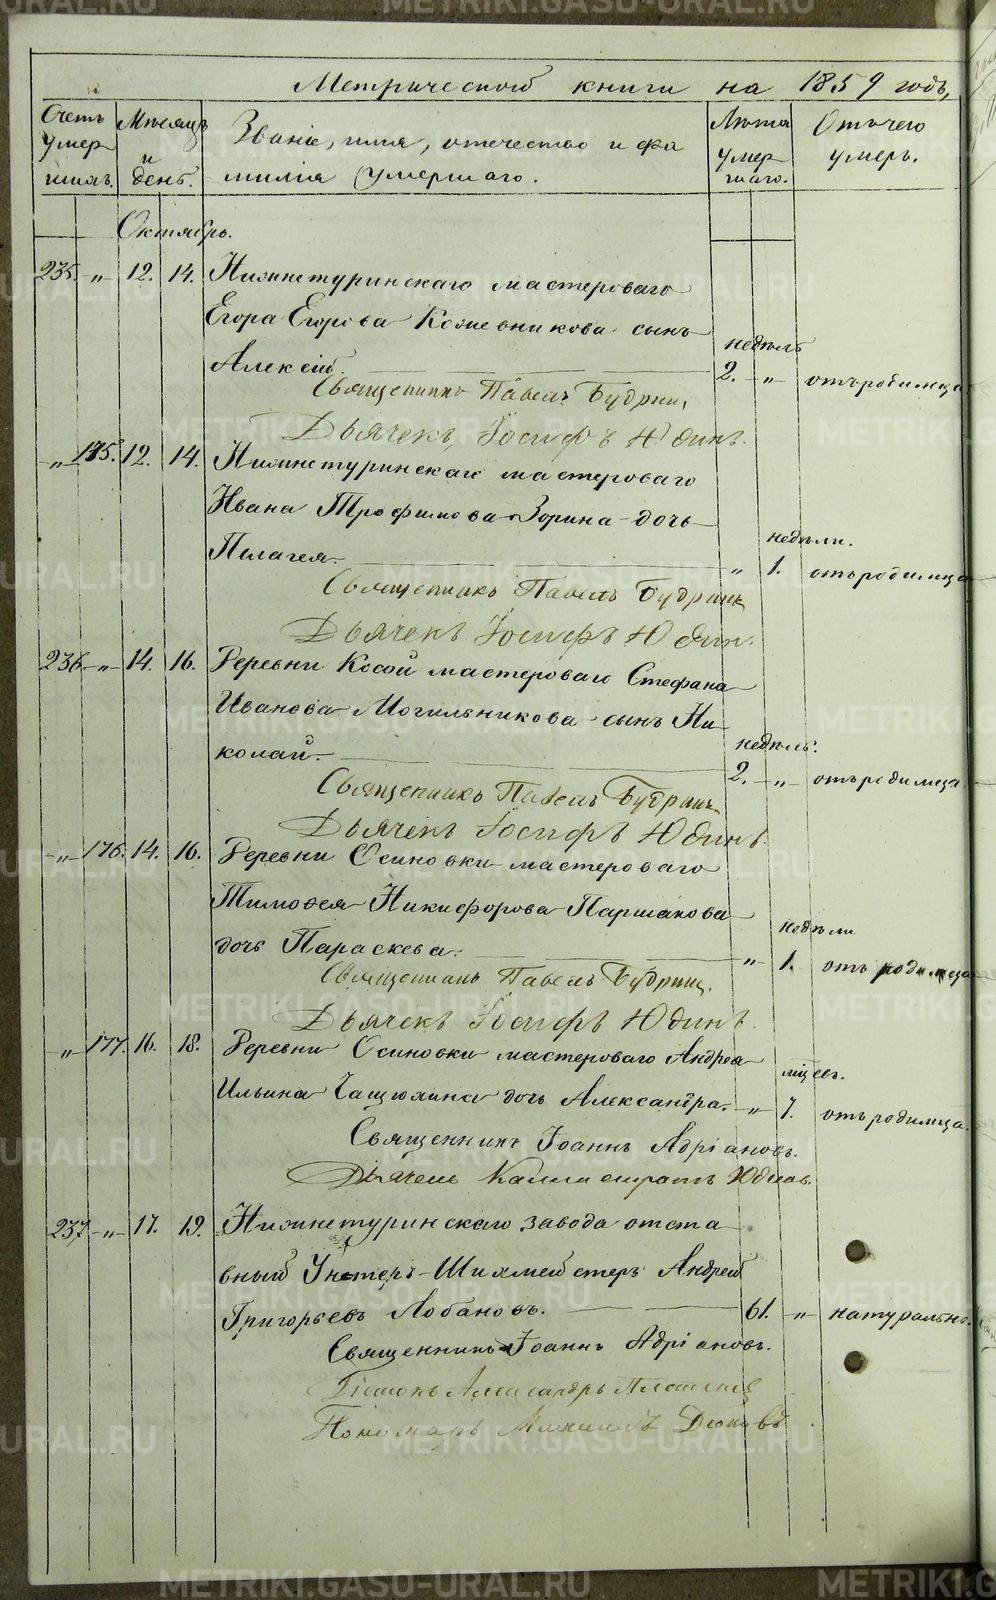 Метрической книги на 1859 годъ,
Счетъ умер шихъ.
Мѣсяцъ и день.
Званіе, имя, отечество и фа милія умершаго.
Лѣта умер шаго.
Отъ чего умеръ.
Октябрь.
235. „ 12. 14. Нижнетуринскаго мастероваго
Егора Егорова Кожевникова сынъ
недѣль
Алексѣй. 2. „ отъ родимца
Священникъ Павелъ Будринъ
Дьячекъ Іосифъ Юдинъ.
„ 175. 12. 14. Нижнетуринскаго мастероваго
Ивана Трофимова Зорина дочь
недѣли.
Пелагея. „ 1. отъ родимца
Священникъ Павелъ Будринъ
Дьячекъ Іосифъ Юдин.
236. „ 14. 16. Деревни Косой мастероваго Стефана
Иванова Могильникова сынъ Ни
недѣль.
колай. 2. „ отъ родимца
Священникъ Павелъ Будринъ
Дьячекъ Іосифъ Юдинъ.
„ 176. 14. 16. Деревни Осиновки мастероваго
Тимоѳея Никифорова Паршакова
недѣли
дочь Параскева. „ 1. отъ родимца
Священникъ Павелъ Будринъ.
Дьячекъ Іосифъ Юдинъ.
„ 177. 16. 18. Деревни Осиновки мастероваго Андрея
мѣсец.
Ильина Чащихина дочь Александра. „ 7. отъ родимца.
Священникъ Іоаннъ Адріановъ.
Дьячекъ Каллистратъ Юдинъ.
237. „ 17. 19. Нижнетуринскаго завода отста
вный Унтеръ-Шихмейстеръ Андрей
Григорьевъ Лобановъ. 61. „ натурально.
Священникъ Іоаннъ Адріановъ.
Діаконъ Александръ
Пономарь Михаилъ
METRIKI.GASO-URAL.RU